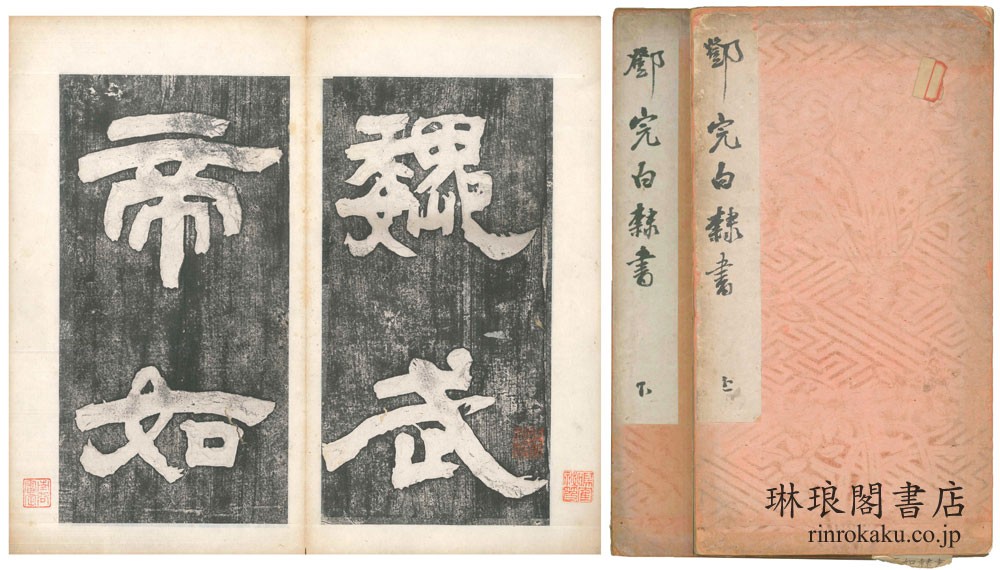 魏武
帝如
鄧完白隸書 上
鄧完白隸書 下
琳琅閣書店
rinrokaku.co.jp